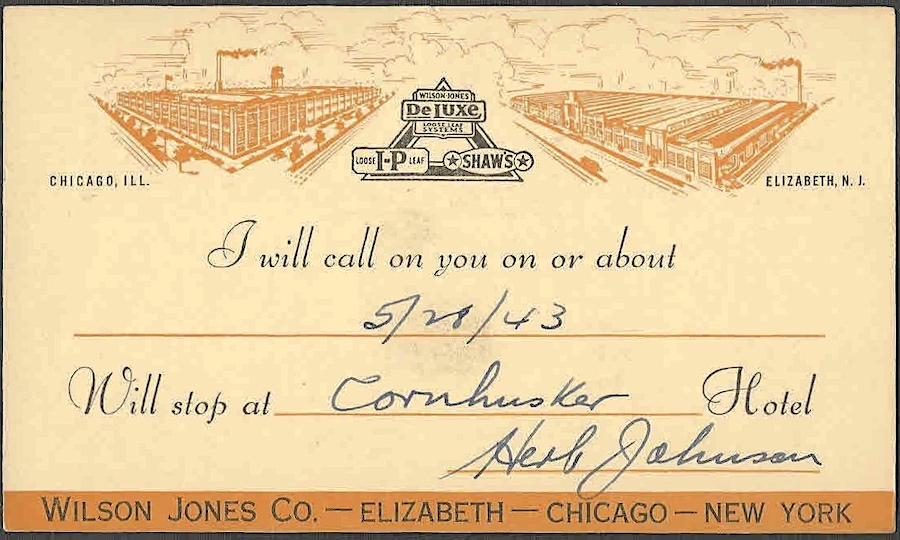 WILSON-JONES
DeLUXE
LOOSE LEAF
SYSTEMS
LOOSE I-P LEAF
SHAW'S
CHICAGO, ILL.
ELIZABETH, N. J.
I will call on you on or about
5/28/43
Will stop at Cornhusker Hotel
Herb Johnson
WILSON JONES CO. — ELIZABETH — CHICAGO — NEW YORK